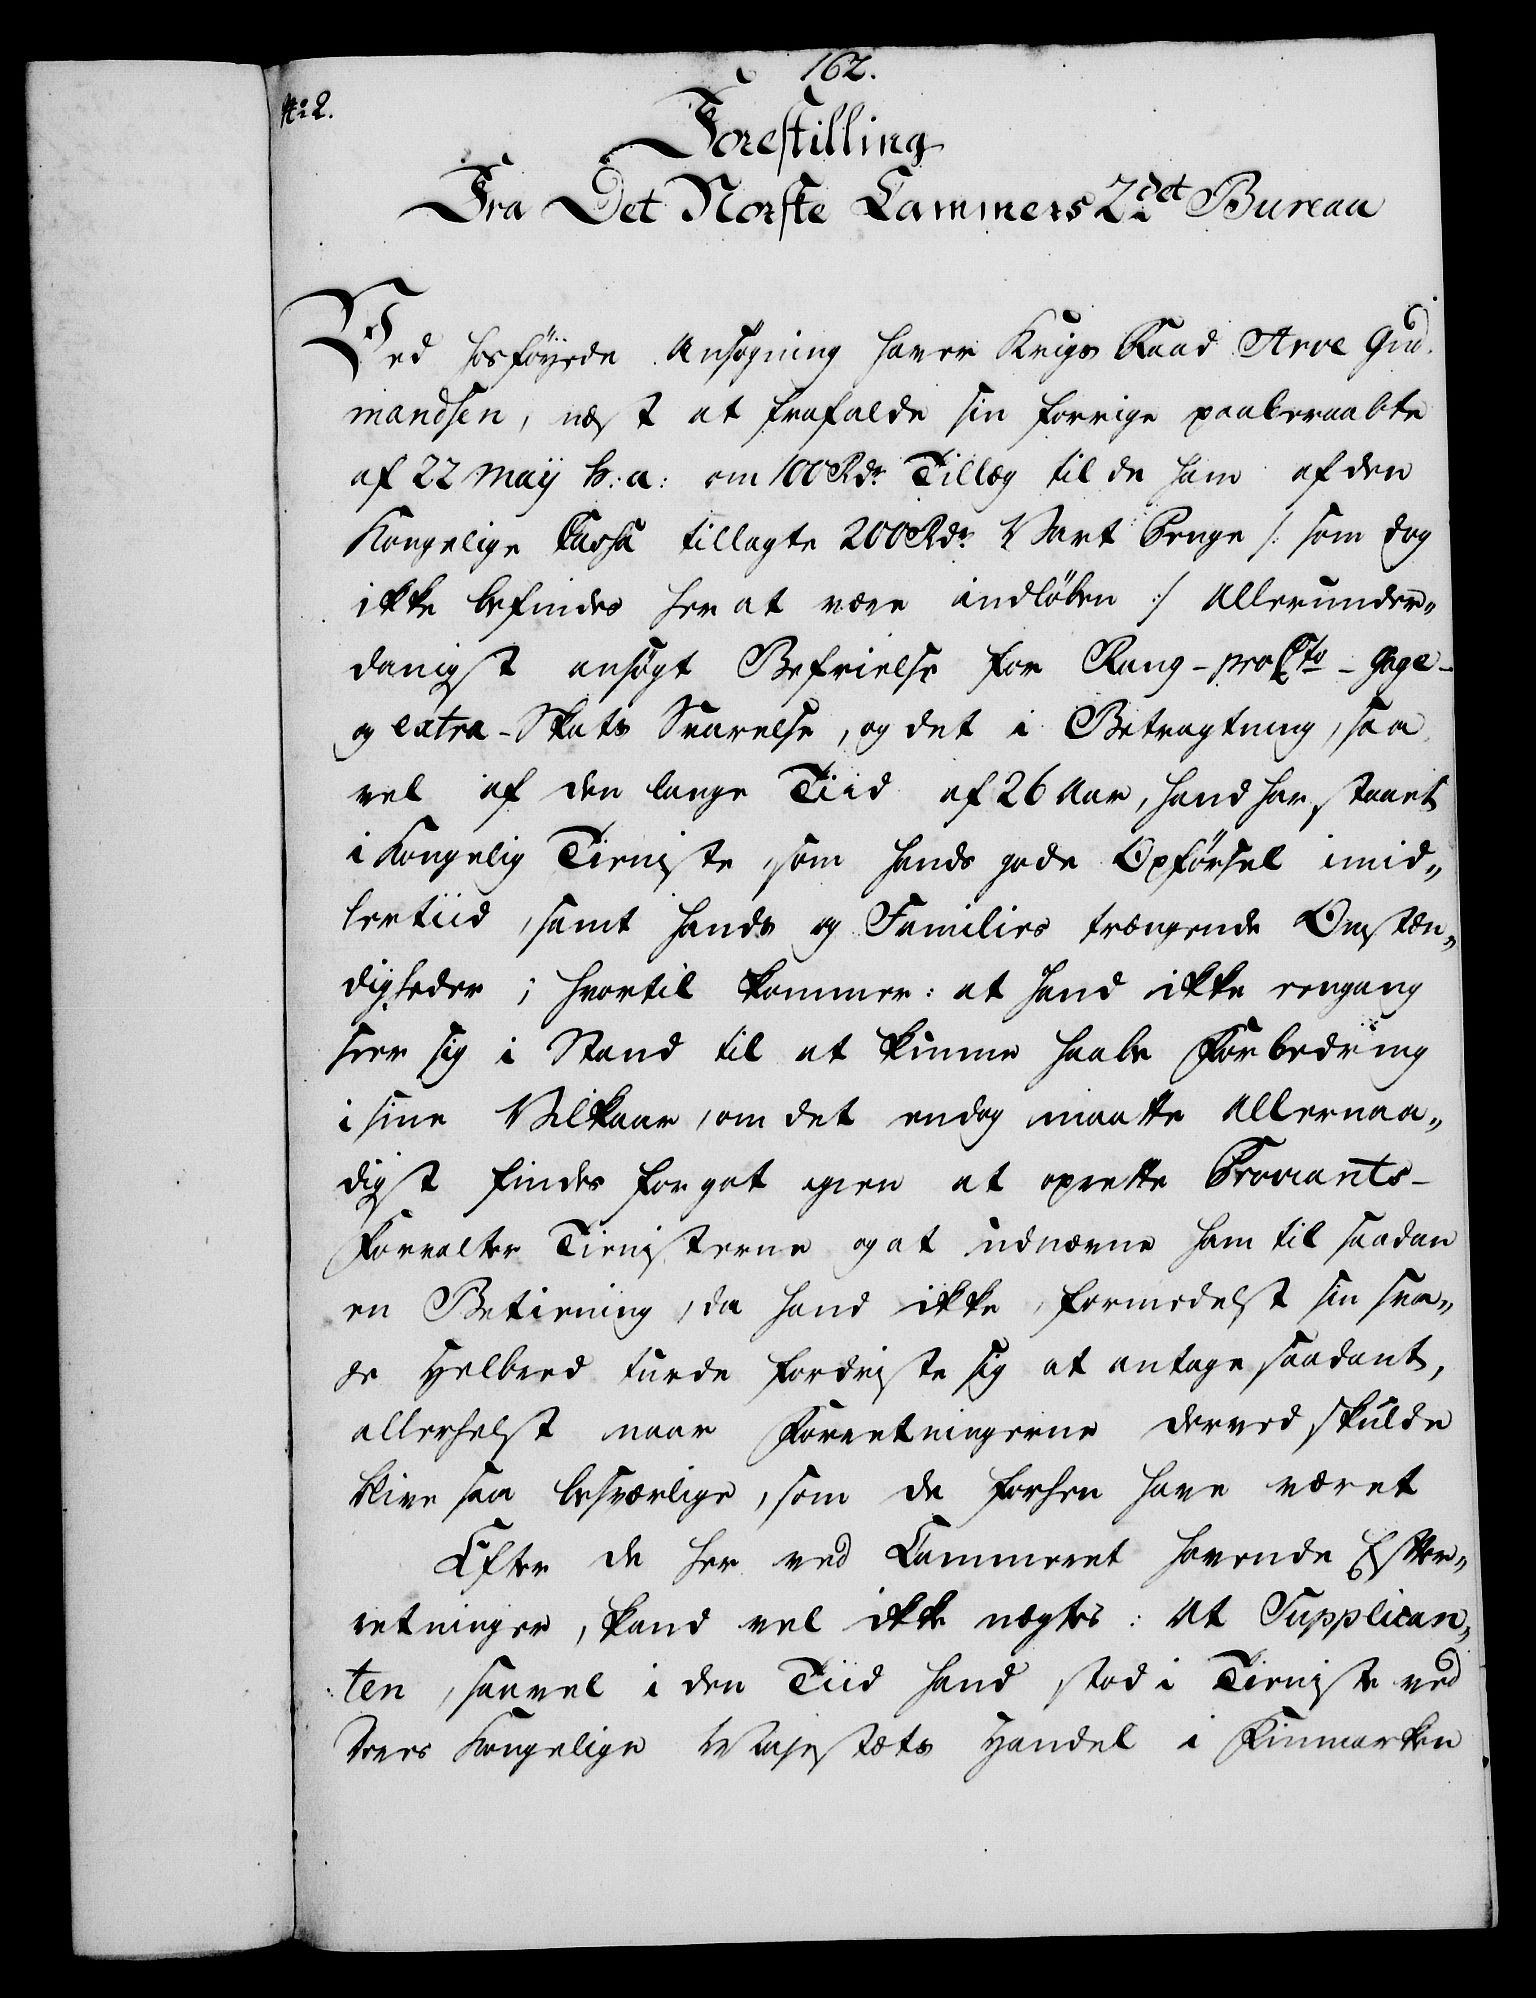 162.
No: 2.
Forestilling
Fra Det Norske Cammers 2det Bureau
Ved hosföyede Ansøgning haver Krigs Raad Arve Gud-
mandsen, næst at frafalde sin forrige paaberaabte
af 22 Maÿ h: a: om 100 Rdr Tillæg til de ham af den
Kongelige Cassa tillagte 200 Rdr Vart Penge /: som dog
ikke befindes her at være indløben :/ Allerunder„
danigst ansøgt Befrielse for Rang- pro Cto- Gage-
og extra- Skats Svarelse, og det i Betragtning, saa
vel af den lange Tiid af 26 Aar, hand har staaet
i Kongelig Tieniste, som hands gode Opförsel imid„
lertiid, samt hands og Families trængende Omstæn„
digheder; hvortil kommer: at hand ikke eengang
seer sig i Stand til at kunne haabe Forbedring
i sine Vilkaar, om det endog maatte Allernaa„
digst findes for got igien at oprette Proviants-
Forvalter Tienisterne og at udnævne ham til saadan
en Betiening, da hand ikke, formedelst sin sva„
ge Helbred turde fordriste sig at antage saadant,
allerhelst naar Forretningerne derved skulde
blive saa besværlige, som de forhen have været
Efter de her ved Cammeret havende Efter„
retninger, kand vel ikke nægtes: At Supplican„
ten, saavel i den Tiid hand stod i Tieniste ved
Deres Kongelige Majestæts Handel i Finmarken